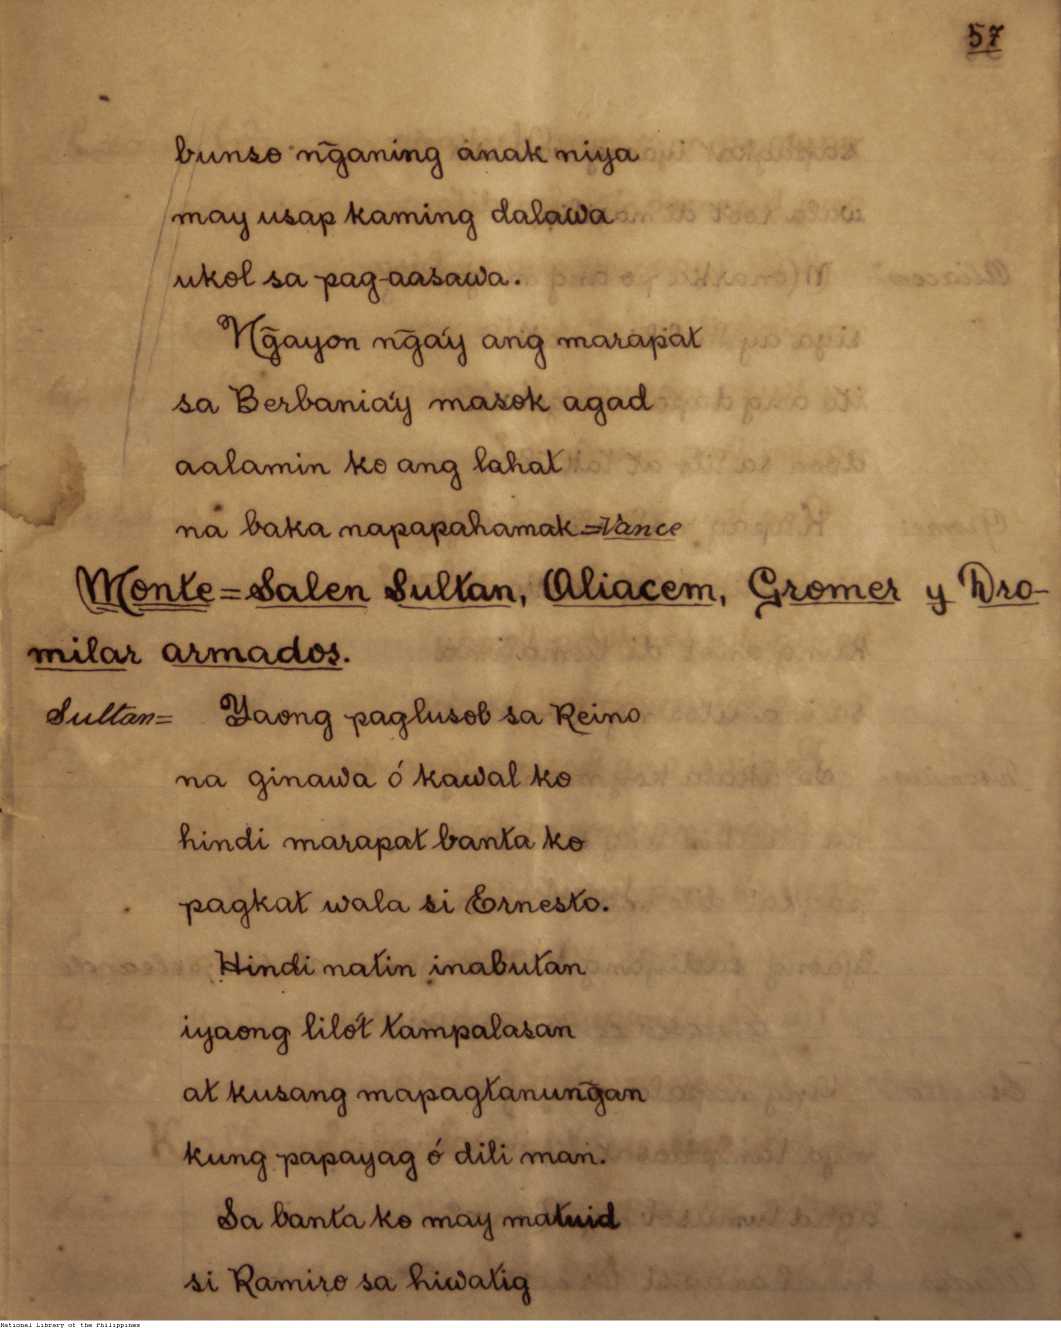 57
bunso ng̃aning anak niya
may usap kaming dalawa
ukol sa pag-aasawa.
Ng̃ayon ng̃a'y ang marapat
sa Berbania'y masok agad
aalamin ko ang lahat
na baka napapahamak =Vance
Monte=Salen Sultan, Aliacem, Gromer y Dro-
milar armados.
Sultan= Yaong paglusob sa Reino
na ginawa ó kawal ko
hindi marapat banta ko
pagkat wala si Ernesto.
Hindi natin inabutan
iyaong lilo't tampalasan
at kusang mapagtanung̃an
kung papayag ó dili man.
Sa banta ko may matuid
si Ramiro sa hiwatig
National Library of the Philippines